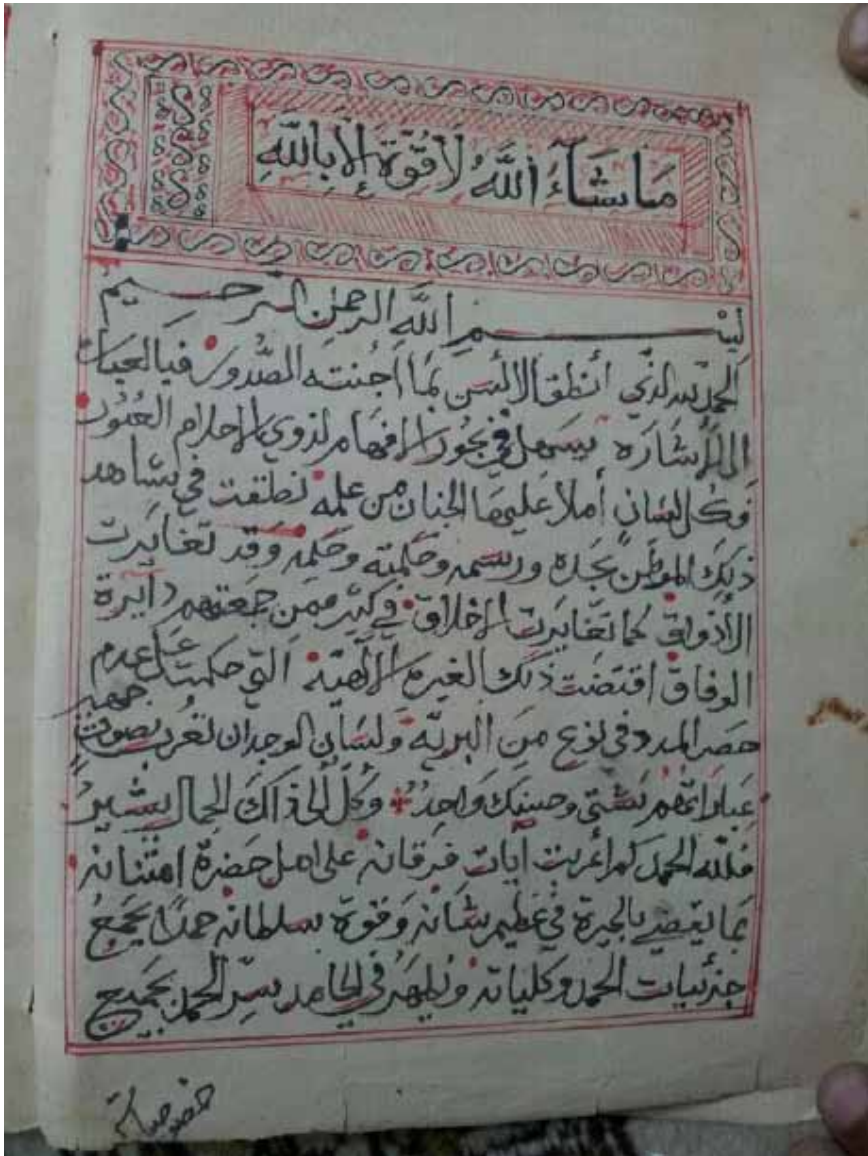 مَا شَآءَ اللَّهُ لَا قُوَّةَ إِلَّا بِاللَّهِ
بِسْمِ اللَّهِ الرحمن الرَّحِيم
الحمد لله الذي أنطق الالسن بما أجنته الصُّدور فيا لعبات
الى الأشَارَه يسهل في بحور الافهام لذوي الاحلام العُبُور
فكل لسان أملا عَليهَا الجنان من علمه نطقت في شاهد
ذلِكَ الموطن بحده ورسمه وحكمته وحكمه وَقد تغايرت
الأذواق كما تغَايرت الاخلاق في كثير ممن جمعتهم دايرة
الوفاق اقتضَت ذلك الغيرة الالَهية التي حكمت على عدم
حصر المدد في نوع منَ البريَّه وَلسَان الوجدان تعرب بصوت جهير
عباراتهم شتى وحسنك وَاحدٌ وَكُلّ الى ذاكَ الجمال يشيرُ
فللّه الحمد كم أعربت آيات فرقانه على اهل حضرة امتنانه
بما يقضي بالحيرة في عظيم شانه وَقوة سلطانه حمدًا يجمعُ
جزئيات الحمد وكلياته وَيظهر في الحامد سِرّ الحمد بجميع
خصوصياته